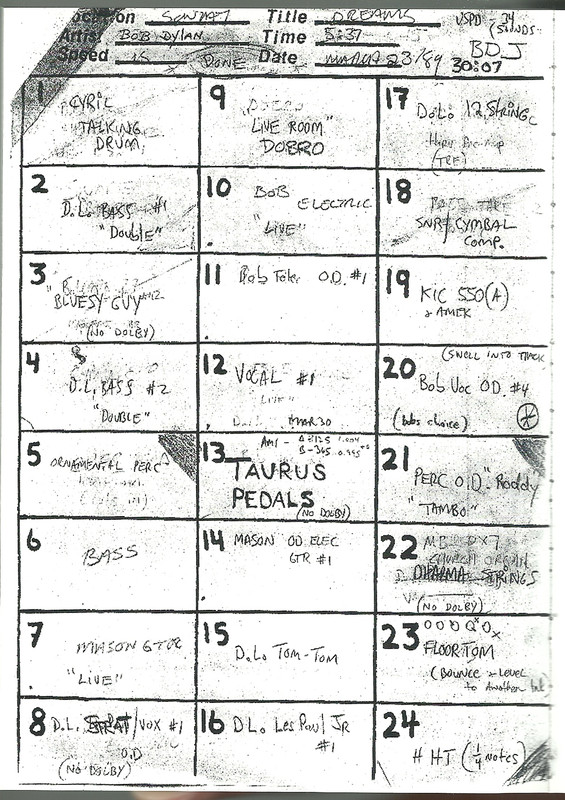 Location Title DREAMS
Artist BOB DYLAN Time 5:37
Speed 15 DONE Date MARCH 23/89
VSPD - 34
BDJ
30:07
1 CYRIL
TALKING
DRUM
2 D.L. BASS #1
"DOUBLE"
3
"BLUESY GUY"
(NO DOLBY)
4
D.L. BASS #2
"DOUBLE"
5 ORNAMENTAL PERC
6 BASS
7 MASON GTR
"LIVE"
8 D.L. STRAT/VOX #1
O.D
(NO DOLBY)
9
LIVE ROOM"
DOBRO
10 BOB
ELECTRIC
"LIVE"
11 Bob Tele O.D. #1
12 VOCAL #1
LIVE"
MAR 30
13
TAURUS
PEDALS
(NO DOLBY)
14 MASON OD ELEC
GTR #1
15 D.L. TOM-TOM
16 D.L. Les Paul JR
#1
17 D.L. 12 STRING
18
SNR/CYMBAL
COMP.
19 KIC 550(A)
& AMEK
20 (SWELL INTO TRACK
Bob Voc OD. #4
(bobs choice)
21 PERC O.D. "Roddy"
"TAMBO."
22 MB DX7
CHURCH ORGAN
DHARMA STRINGS
(NO DOLBY)
23
FLOOR TOM
(BOUNCE & LEVEL
to Another
24
H HT (1/4 NOTES)